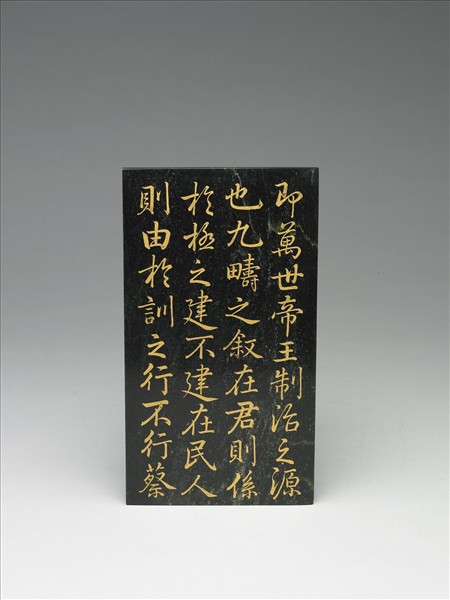 即萬世帝王制治之源
也九疇之叙在君則係
於極之建不建在民人
則由於訓之行不行蔡